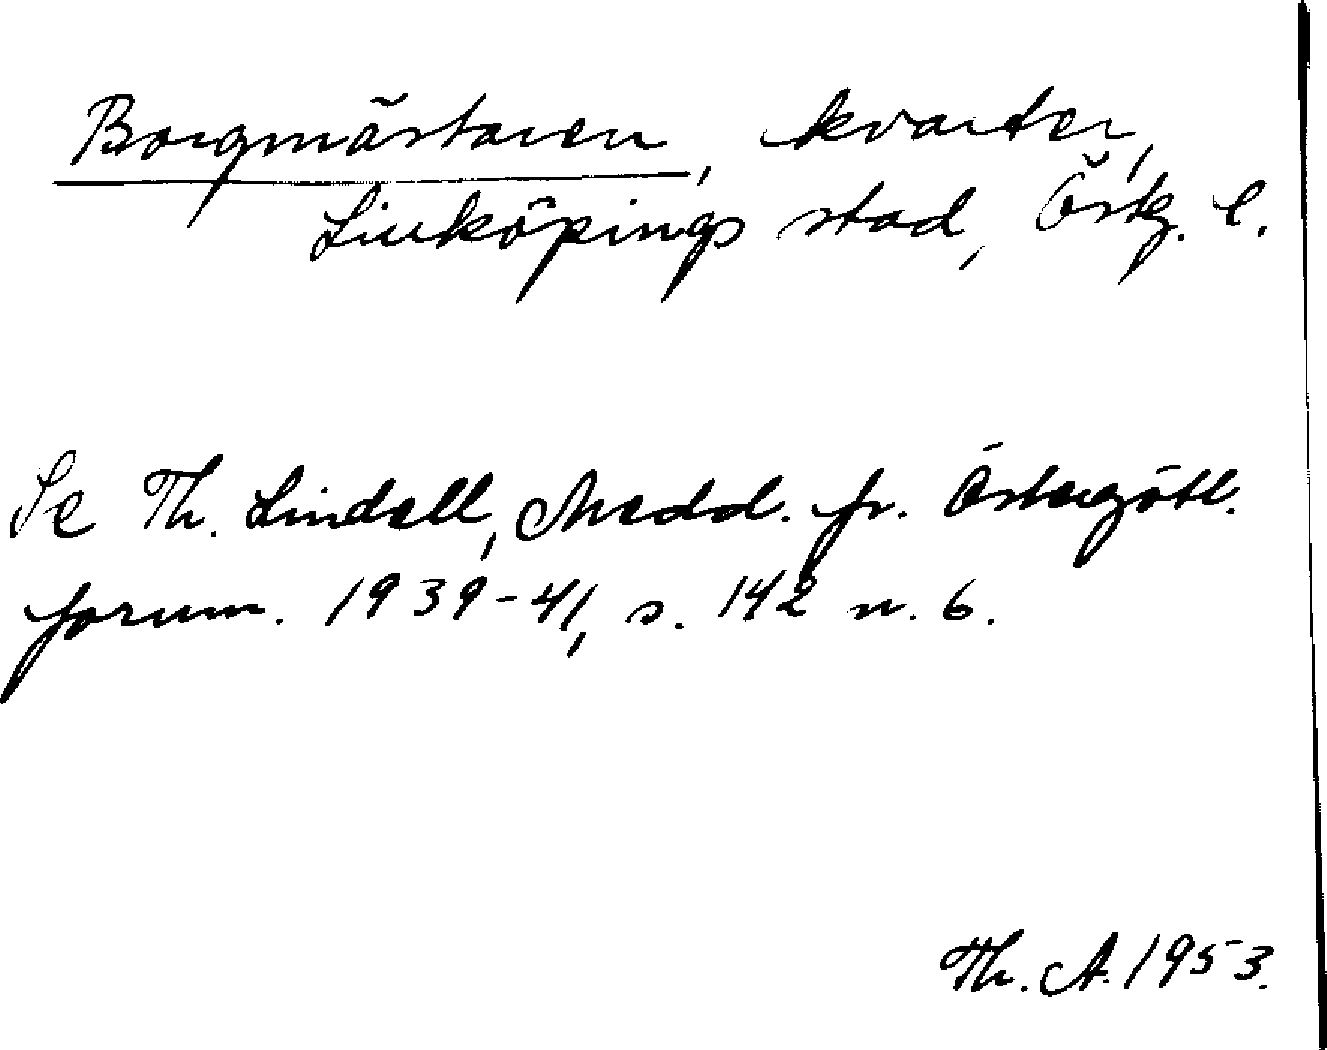 Borgmästaren, kvarter,
Linköpings stad, Östg. l.
Se Th. Lindell, Medd. fr. Östergötl.
fornm. 1939-41, s. 142 n. 6.
Th. A. 1953.